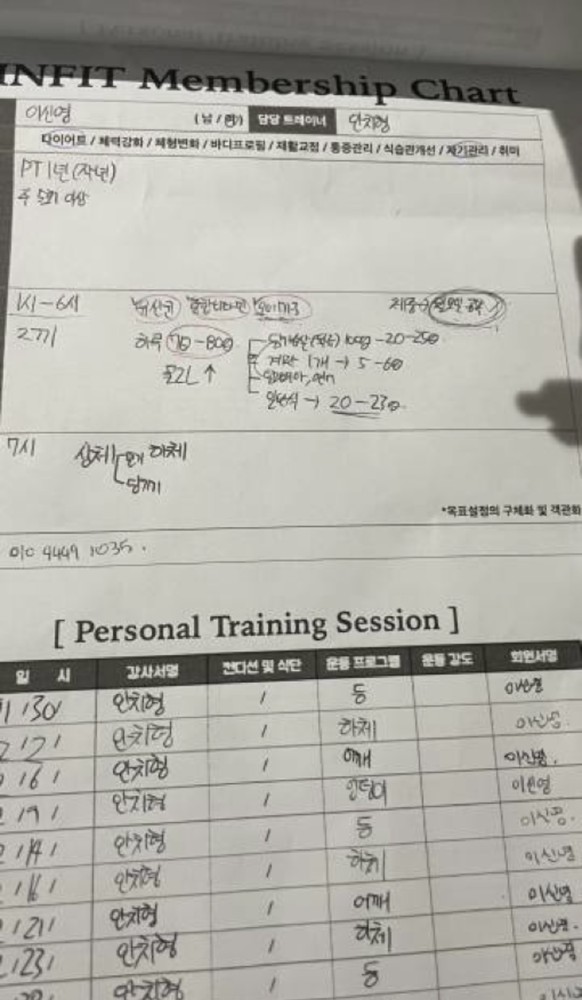 INFIT Membership Chart
이신영 (남 / 여) 담당 트레이너 안치형
다이어트 / 체력강화 / 체형변화 / 바디프로필 / 재활교정 / 통증관리 / 식습관개선 / 자기관리 / 취미
PT 1년 (작년)
주 5회 이상
1시-6시 유산균 종합비타민 오메가3 체중→ 월요일 공복
2끼 하루 70-80g 닭가슴살 100g - 20-25g
물2L ↑ 계란 1개 → 5-6g
일반식 → 20-23g
7시 상체 하체
당기기
*목표설정의 구체화 및 객관화
010 4449 1035.
[ Personal Training Session ]
일 시 강사서명 컨디션 및 식단 운동 프로그램 운동 강도 회원서명
1/30/ 안치형 / 등 이신영
2/2/ 안치형 / 하체 이신영
/6/ 안치형 / 어깨 이신영
/9/ 안치형 / 엉덩이 이신영
2/14/ 안치형 / 등 이신영
2/16/ 안치형 / 하체 이신영
/21/ 안치형 / 어깨 이신영
2/23/ 안치형 / 하체 이신영
안치형 / 등 이신영